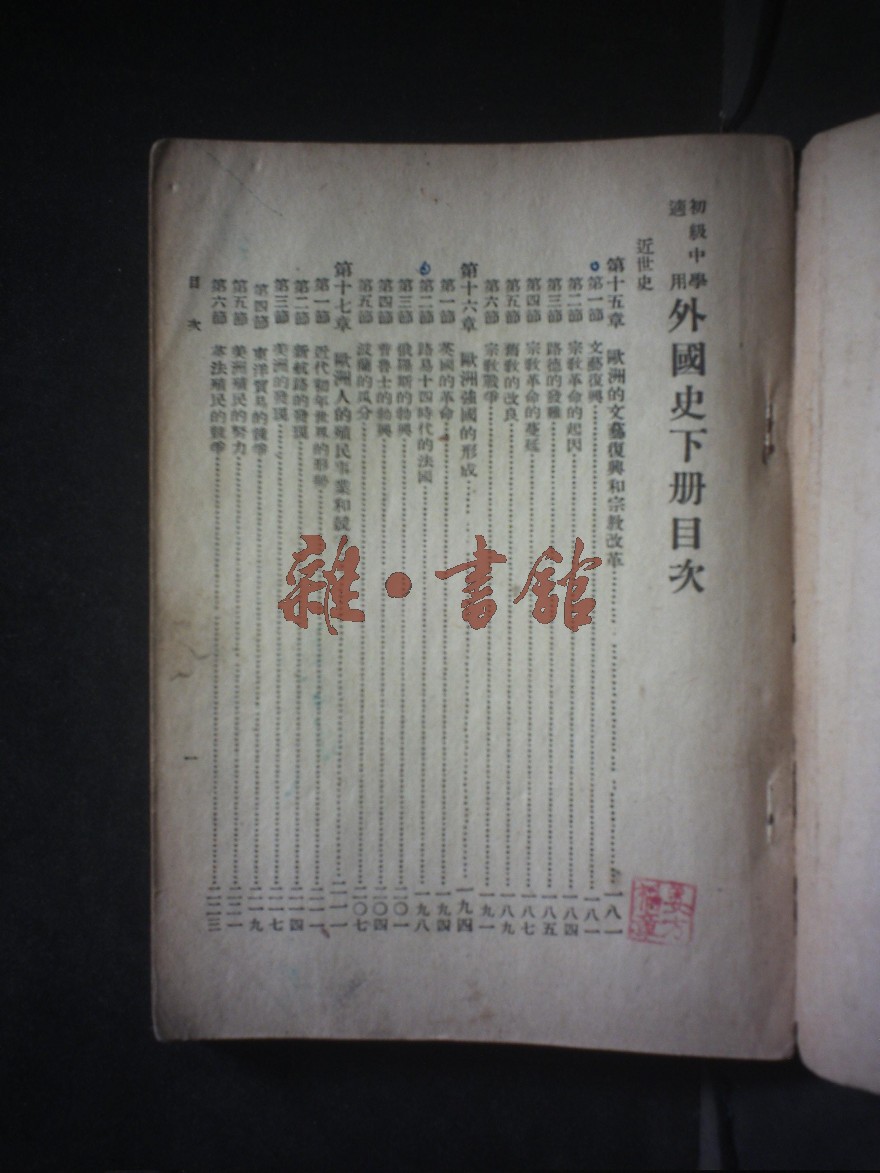 初級中學
適用
外國史下册目次
近世史
第十五章 歐洲的文藝復興和宗教改革……一八一
第一節 文藝復興……一八一
第二節 宗教革命的起因……一八四
第三節 路德的發難……一八五
第四節 宗教革命的蔓延……一八七
第五節 舊教的改良……一八九
第六節 宗教戰爭……一九一
第十六章 歐洲強國的形成……一九四
第一節 英國的革命……一九四
第二節 路易十四時代的法國……一九八
第三節 俄羅斯的勃興……二〇一
第四節 普魯士的勃興……二〇四
第五節 波蘭的瓜分……二〇七
第十七章 歐洲人的殖民事業和競……二一一
第一節 近代初年世界的形勢……二一一
第二節 新航路的發現……二一四
第三節 美洲的發現……二一七
第四節 東洋貿易的競爭……二一九
第五節 美洲殖民的努力……二二一
第六節 英法殖民的競爭……二二三
目次
一
雜·書館